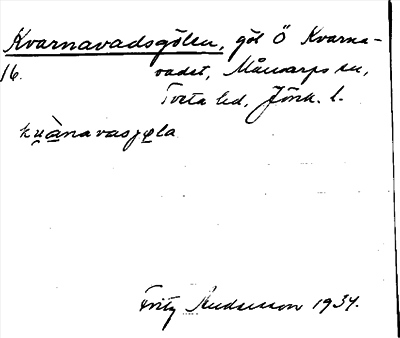 Kvarnavadsgölen, göl Ö Kvarna-
16. vadet, Månsarps sn,
Tveta hd, Jönk. l.
ku̯ànavasjøla
Fritz Andersson 1934.